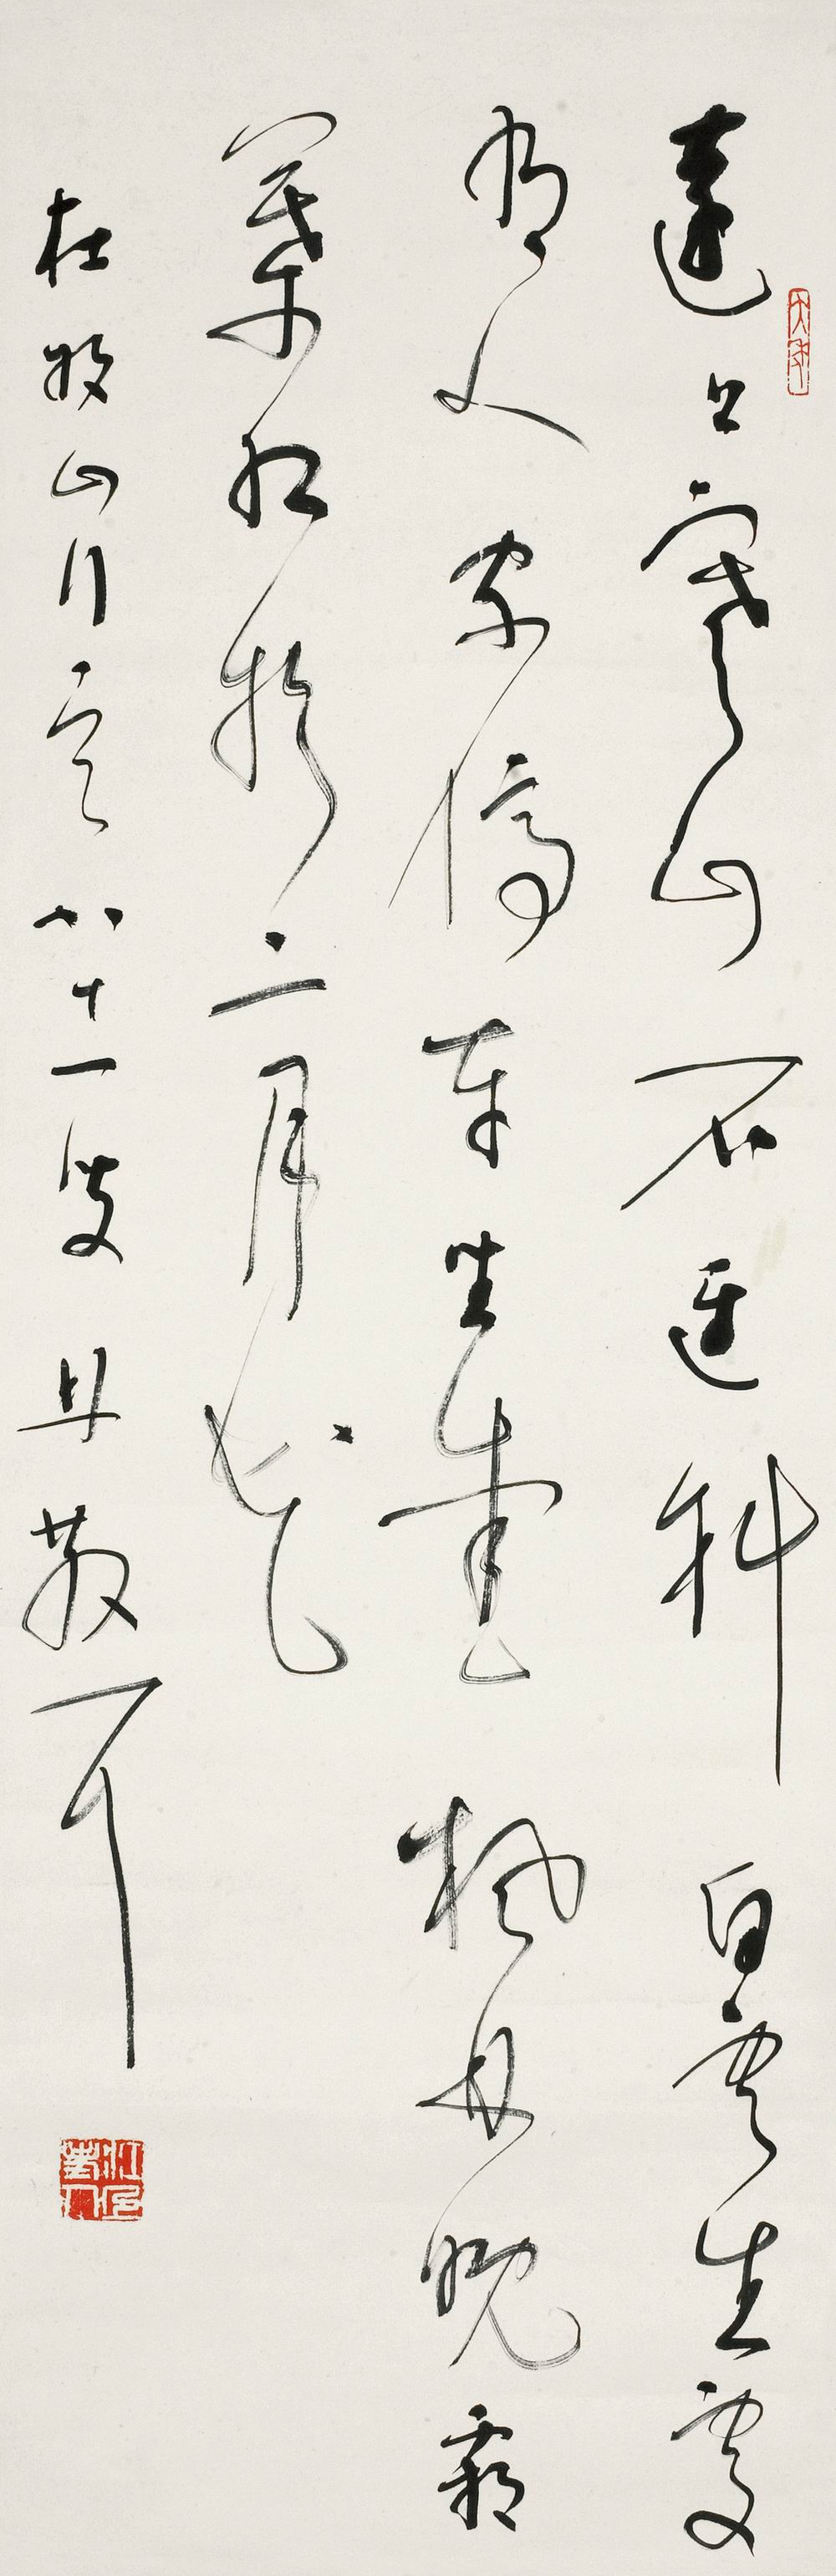 遠上寒山石逕斜白雲生處
有人家停車坐愛楓林晚霜
葉紅於二月花
杜牧山行八十一叟林散耳
大年